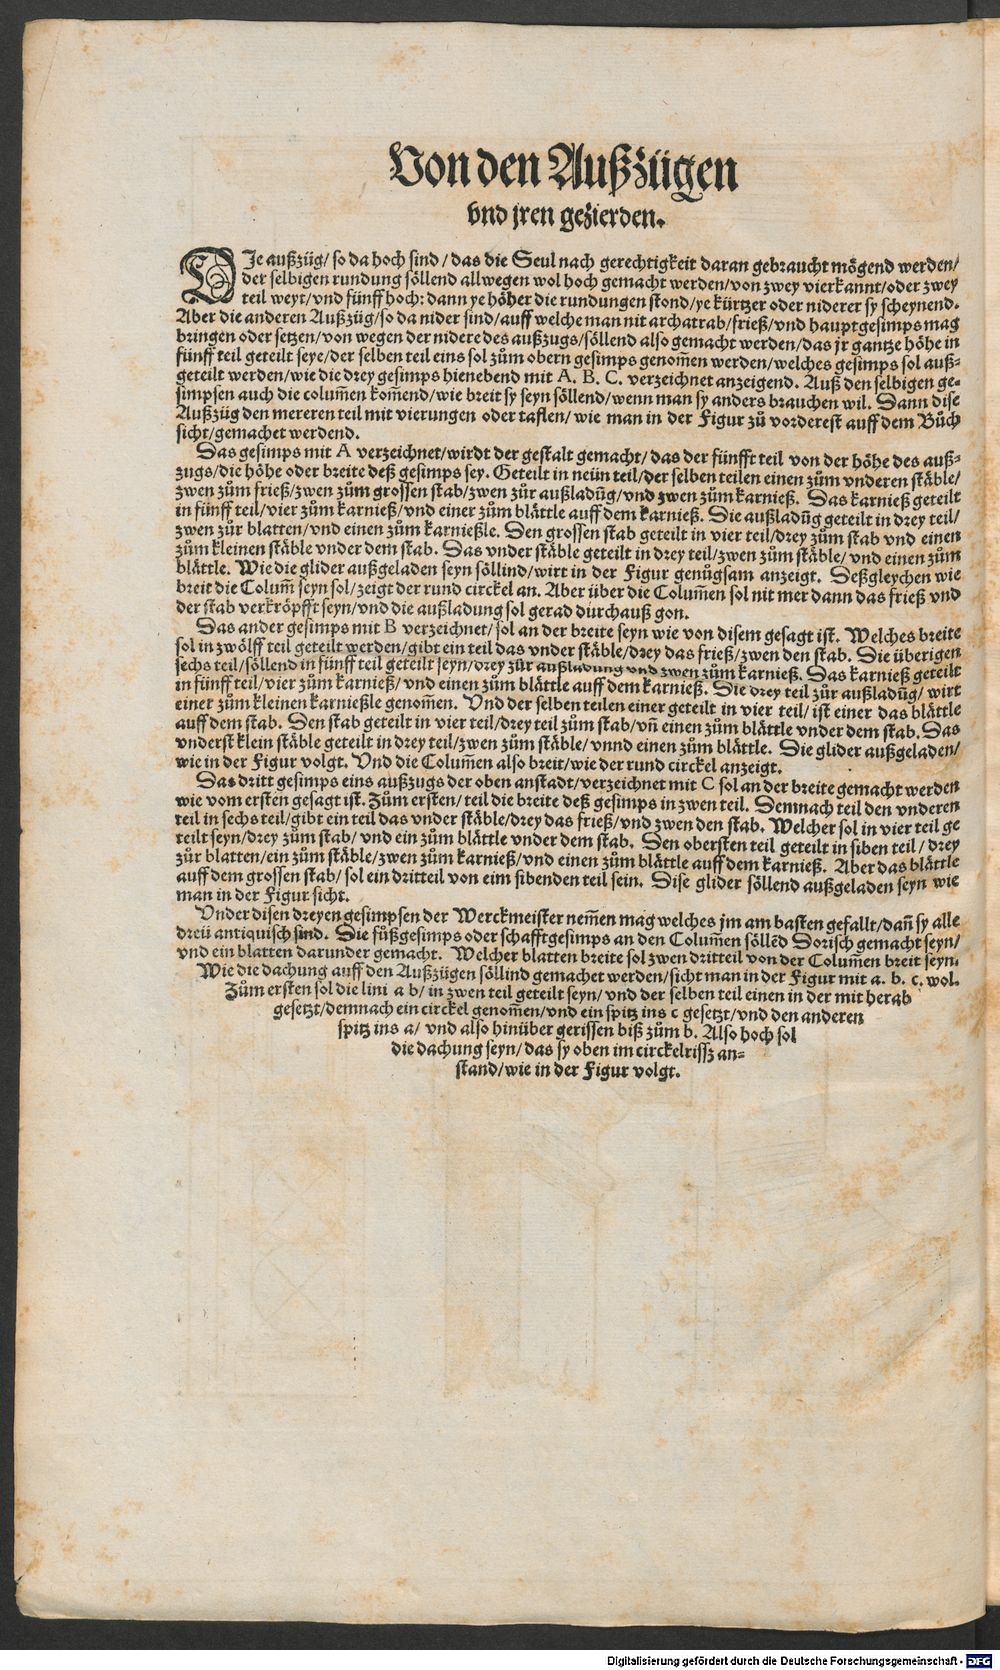 Von den Außzügen
vnd jren gezierden.
DIe außzüg/ so da hoch sind/ das die Seul nach gerechtigkeit daran gebraucht mögend werden/
der selbigen rundung söllend allwegen wol hoch gemacht werden/ von zwey vierkannt/ oder zwey
teil weyt/ vnd fünff hoch: dann ye höher die rundungen stond/ ye kürtzer oder niderer sy scheynend.
Aber die anderen Außzüg/ so da nider sind/ auff welche man nit archatrab/ frieß/ vnd hauptgesimps mag
bringen oder setzen/ von wegen der nidere des außzugs/ söllend also gemacht werden/ das jr gantze höhe in
fünff teil geteilt seye/ der selben teil eins sol zům obern gesimps genom̃en werden/ welches gesimps sol auß⸗
geteilt werden/ wie die drey gesimps hienebend mit A. B. C. verzeichnet anzeigend. Auß den selbigen ge⸗
simpsen auch die colum̃en kom̃end/ wie breit sy seyn söllend/ wenn man sy anders brauchen wil. Dann dise
Außzüg den mereren teil mit vierungen oder taflen/ wie man in der Figur zů vorderest auff dem Bůch
sicht/ gemachet werdend.
Das gesimps mit A verzeichnet/ wirdt der gestalt gemacht/ das der fünfft teil von der höhe des auß⸗
zugs/ die höhe oder breite deß gesimps sey. Geteilt in neün teil/ der selben teilen einen zům vnderen stäble/
zwen zům frieß/ zwen zům grossen stab/ zwen zůr außladūg/ vnd zwen zům karnieß. Das karnieß geteilt
in fünff teil/ vier zům karnieß/ vnd einer zům blättle auff dem karnieß. Die außladūg geteilt in drey teil/
zwen zůr blatten/ vnd einen zům karnießle. Den grossen stab geteilt in vier teil/ drey zům stab vnd einen
zům kleinen stäble vnder dem stab. Das vnder stäble geteilt in drey teil/ zwen zům stäble/ vnd einen zům
blättle. Wie die glider außgeladen seyn söllind/ wirt in der Figur genůgsam anzeigt. Deßgleychen wie
breit die Colum̃ seyn sol/ zeigt der rund circkel an. Aber über die Colum̃en sol nit mer dann das frieß vnd
der stab verkröpfft seyn/ vnd die außladung sol gerad durchauß gon.
Das ander gesimps mit B verzeichnet/ sol an der breite seyn wie von disem gesagt ist. Welches breite
sol in zwölff teil geteilt werden/ gibt ein teil das vnder stäble/ drey das frieß/ zwen den stab. Die überigen
sechs teil/ söllend in fünff teil geteilt seyn/ drey zůr außladung vnd zwen zům karnieß. Das karnieß geteilt
in fünff teil/ vier zům karnieß/ vnd einen zům blättle auff dem karnieß. Die drey teil zůr außladūg/ wirt
einer zům kleinen karnießle genom̃en. Vnd der selben teilen einer geteilt in vier teil/ ist einer das blättle
auff dem stab. Den stab geteilt in vier teil/ drey teil zům stab/ vñ einen zům blättle vnder dem stab. Das
vnderst klein stäble geteilt in drey teil/ zwen zům stäble/ vnnd einen zům blättle. Die glider außgeladen/
wie in der Figur volgt. Vnd die Colum̃en also breit/ wie der rund circkel anzeigt.
Das dritt gesimps eins außzugs der oben anstadt/ verzeichnet mit C sol an der breite gemacht werden
wie vom ersten gesagt ist. Zům ersten/ teil die breite deß gesimps in zwen teil. Demnach teil den vnderen
teil in sechs teil/ gibt ein teil das vnder stäble/ drey das frieß/ vnd zwen den stab. Welcher sol in vier teil ge
teilt seyn/ drey zům stab/ vnd ein zům blättle vnder dem stab. Den obersten teil geteilt in siben teil/ drey
zůr blatten/ ein zům stäble/ zwen zům karnieß/ vnd einen zům blättle auff dem karnieß. Aber das blättle
auff dem grossen stab/ sol ein dritteil von eim sibenden teil sein. Dise glider söllend außgeladen seyn wie
man in der Figur sicht.
Vnder disen dreyen gesimpsen der Werckmeister nem̃en mag welches jm am basten gefallt/ dañ sy alle
dreü antiquisch sind. Die fůßgesimps oder schafftgesimps an den Colum̃en söllēd Dorisch gemacht seyn/
vnd ein blatten darunder gemacht. Welcher blatten breite sol zwen dritteil von der Colum̃en breit seyn.
Wie die dachung auff den Außzügen söllind gemachet werden/ sicht man in der Figur mit a. b. c. wol.
Zům ersten sol die lini a b/ in zwen teil geteilt seyn/ vnd der selben teil einen in der mit herab
gesetzt/ demnach ein circkel genom̃en/ vnd ein spitz ins c gesetzt/ vnd den anderen
spitz ins a/ vnd also hinüber gerissen biß zům b. Also hoch sol
die dachung seyn/ das sy oben im circkelrissz an⸗
stand/ wie in der Figur volgt.
Digitalisierung gefördert durch die Deutsche Forschungsgemeinschaft - DFG